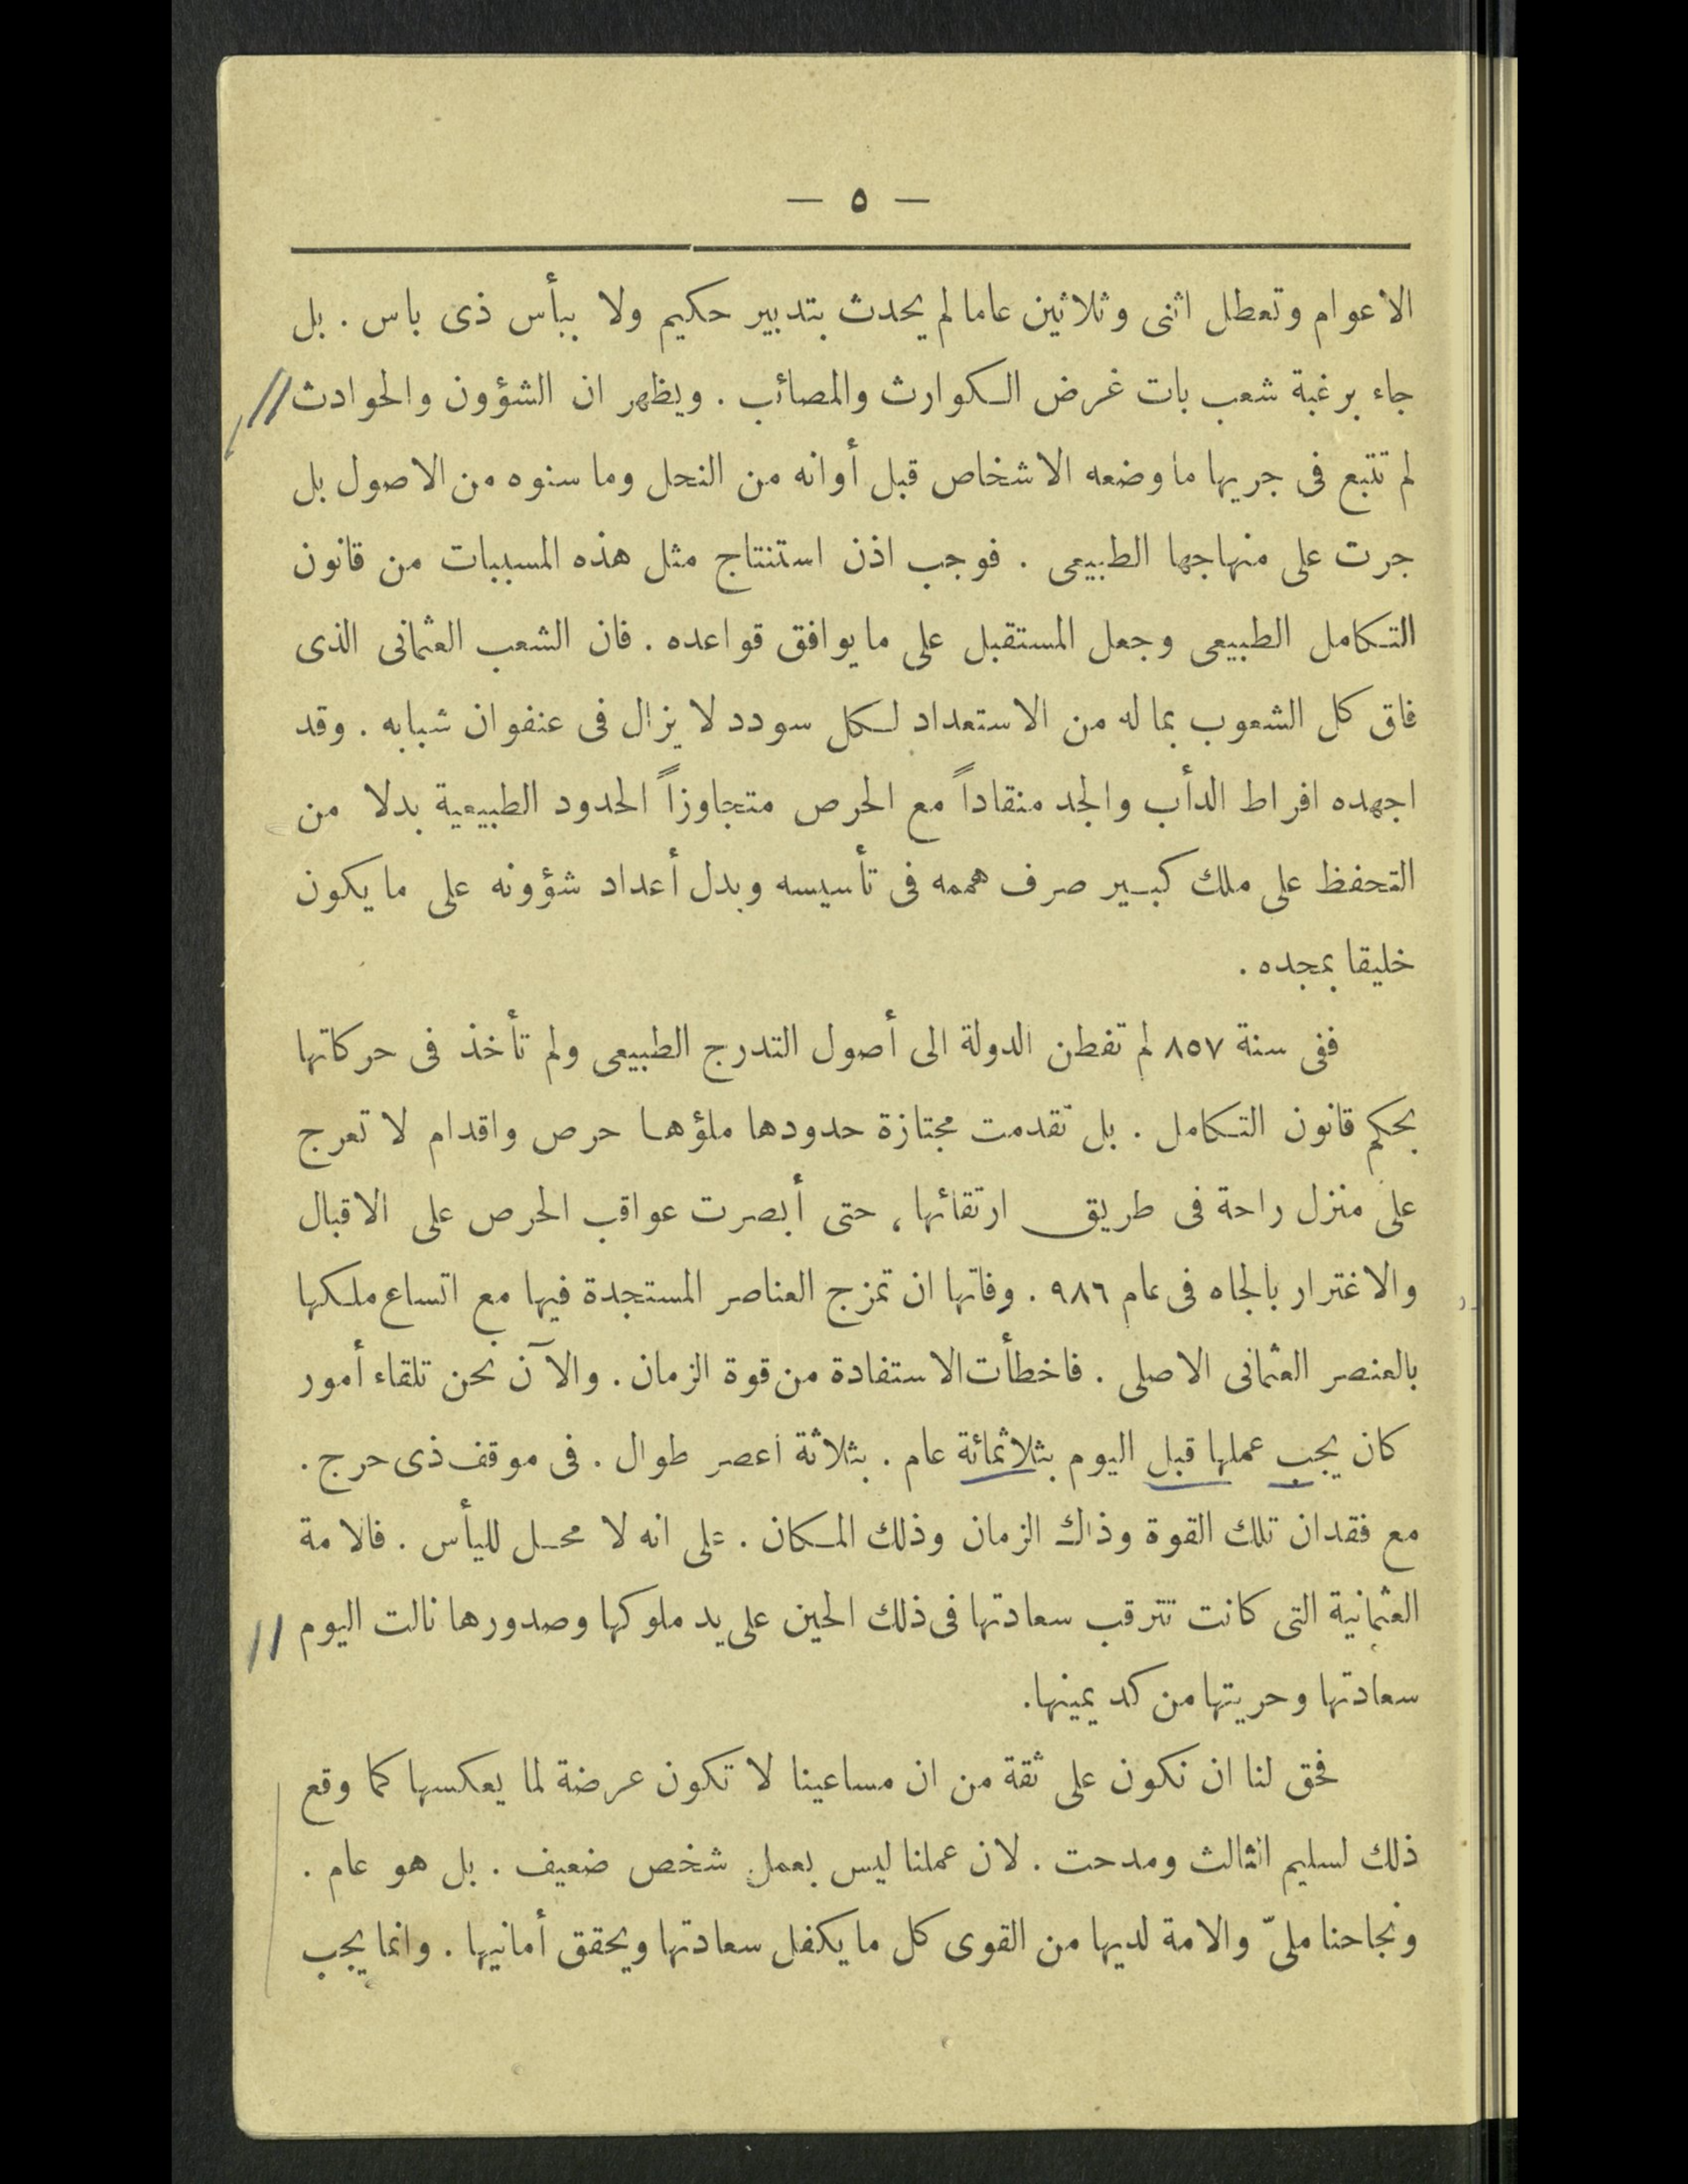 — ٥ —
الاعوام وتعطل اثنى وثلاثين عاما لم يحدث بتدبير حكيم ولا ببأس ذى باس . بل
جاء برغبة شعب بات غرض الكوارث والمصائب . ويظهر ان الشؤون والحوادث
لم تتبع فى جريها ما وضعه الاشخاص قبل أوانه من النحل وما سنوه من الاصول بل
جرت على منهاجها الطبيعى . فوجب اذن استنتاج مثل هذه المسببات من قانون
التكامل الطبيعى وجعل المستقبل على ما يوافق قواعده . فان الشعب العثمانى الذى
فاق كل الشعوب بما له من الاستعداد لكل سودد لا يزال فى عنفوان شبابه . وقد
اجهده افراط الدأب والجد منقاداً مع الحرص متجاوزاً الحدود الطبيعية بدلا من
التحفظ على ملك كبير صرف هممه فى تأسيسه وبدل أعداد شؤونه على ما يكون
خليقا بمجده .
ففى سنة ٨٥٧ لم تفطن الدولة الى أصول التدرج الطبيعى ولم تأخذ فى حركاتها
بحكم قانون التكامل . بل تقدمت مجتازة حدودها ملؤها حرص واقدام لا تعرج
على منزل راحة فى طريق ارتقائها ، حتى أبصرت عواقب الحرص على الاقبال
والاغترار بالجاه فى عام ٩٨٦ . وفاتها ان تمزج العناصر المستجدة فيها مع اتساع ملكها
بالعنصر العثمانى الاصلى . فاخطأت الاستفادة من قوة الزمان . والآن نحن تلقاء أمور
كان يجب عملها قبل اليوم بثلاثمائة عام . بثلاثة اعصر طوال . فى موقف ذى حرج .
مع فقدان تلك القوة وذاك الزمان وذلك المكان . على انه لا محل لليأس . فالامة
العثمانية التى كانت تترقب سعادتها فى ذلك الحين على يد ملوكها وصدورها نالت اليوم
سعادتها وحريتها من كد يمينها .
فحق لنا ان نكون على ثقة من ان مساعينا لا تكون عرضة لما يعكسها كما وقع
ذلك لسليم الثالث ومدحت . لان عملنا ليس بعمل شخص ضعيف . بل هو عام .
ونجاحنا ملىّ والامة لديها من القوى كل ما يكفل سعادتها ويحقق أمانيها . وانما يجب